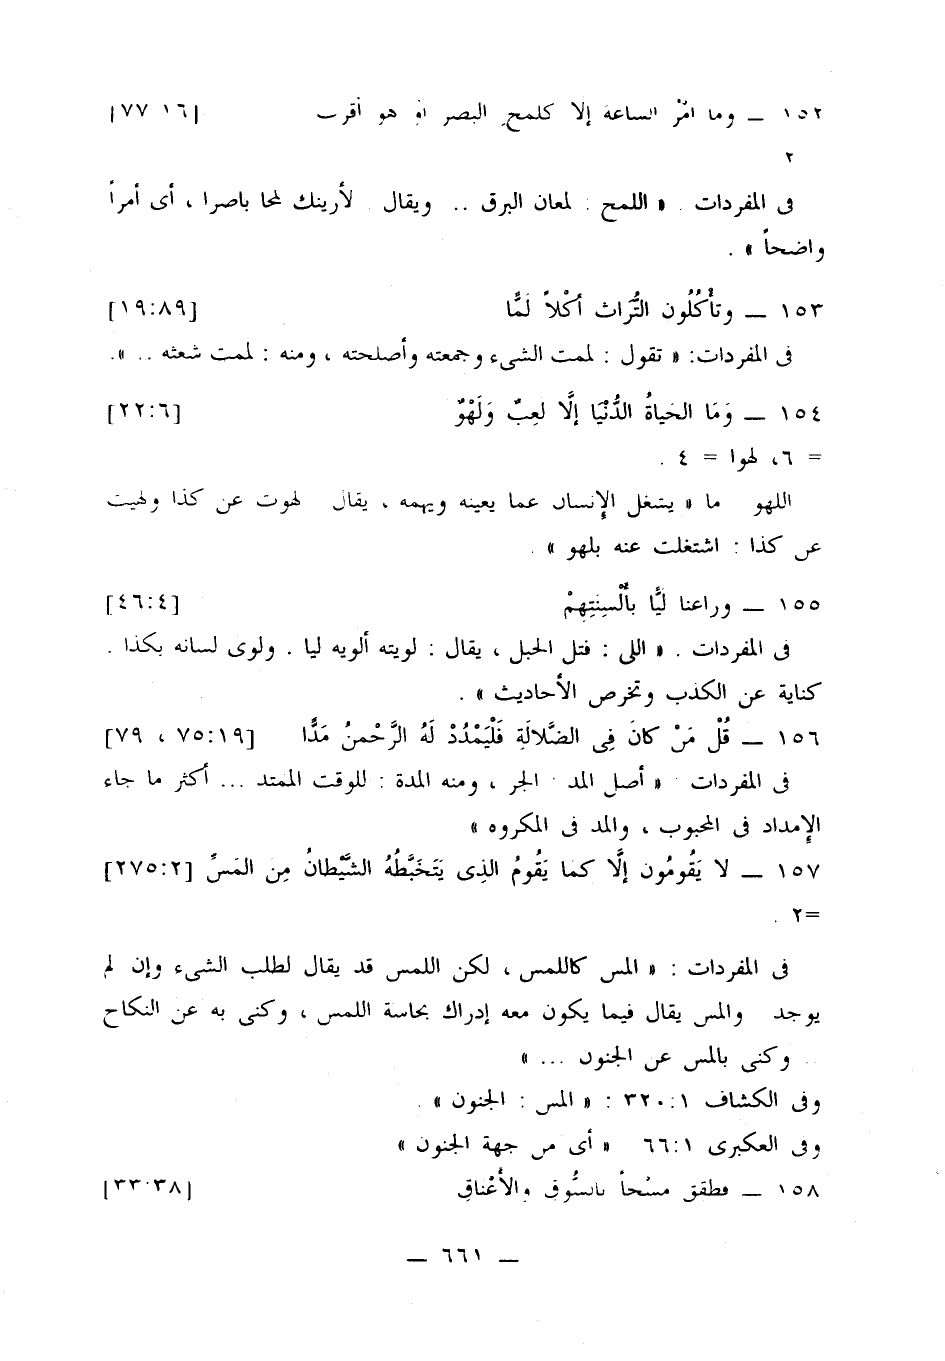 ١٥٢ ــ وما أمْرُ الساعة إلا كلمح البصر أو هو أقرب [١٦ ٧٧]
٢
فى المفردات . « اللمح . لمعان البرق .. ويقال لأرينك لمحا باصرا ، أى أمراً
واضحاً » .
١٥٣ ــ وتأْكُلُون التُّرَاث أكْلاً لَمًّا [١٩:٨٩]
فى المفردات: « تقول : لممت الشىء وجمعته وأصلحته ، ومنه : لممت شعثه .. ».
١٥٤ ــ وَمَا الحَياةُ الدُّنْيَا إلَّا لعِبٌ وَلَهْوٌ [٢٢:٦]
= ٦، لهوا = ٤ .
اللهو ما « يشغل الإنسان عما يعينه ويهمه ، يقال لهوت عن كذا ولهيت
عن كذا : اشتغلت عنه بلهو » .
١٥٥ ــ وراعنا ليًّا بأَلْسِنَتِهِمْ [٤٦:٤]
فى المفردات . « اللى : فتل الحبل ، يقال : لويته ألويه ليا . ولوى لسانه بكذا .
كناية عن الكذب وتخرص الأحاديث » .
١٥٦ ــ قُلْ مَنْ كانَ فِى الضَّلالَةِ فَلْيَمْدُدْ لَهُ الرَّحْمنُ مَدًّا [٧٥:١٩ ، ٧٩]
فى المفردات « أصل المد الجر ، ومنه المدة : للوقت الممتد ... أكثر ما جاء
الإمداد فى المحبوب ، والمد فى المكروه »
١٥٧ ــ لا يَقُومُون إلَّا كما يَقُومُ الذِى يَتَخَبَّطُهُ الشَّيْطانُ مِن المَسِّ [٢٧٥:٢]
=٢ .
فى المفردات : « المس كاللمس ، لكن اللمس قد يقال لطلب الشىء وإن لم
يوجد والمس يقال فيما يكون معه إدراك بحاسة اللمس ، وكنى به عن النكاح
.. وكنى بالمس عن الجنون ... »
وفى الكشاف ٣٢٠:١ : « المس : الجنون » .
وفى العكبرى ٦٦:١ « أى من جهة الجنون »
١٥٨ ــ فطفق مسْحاً بالسُّوق والأعْناق [٣٣:٣٨]
ــ ٦٦١ ــ